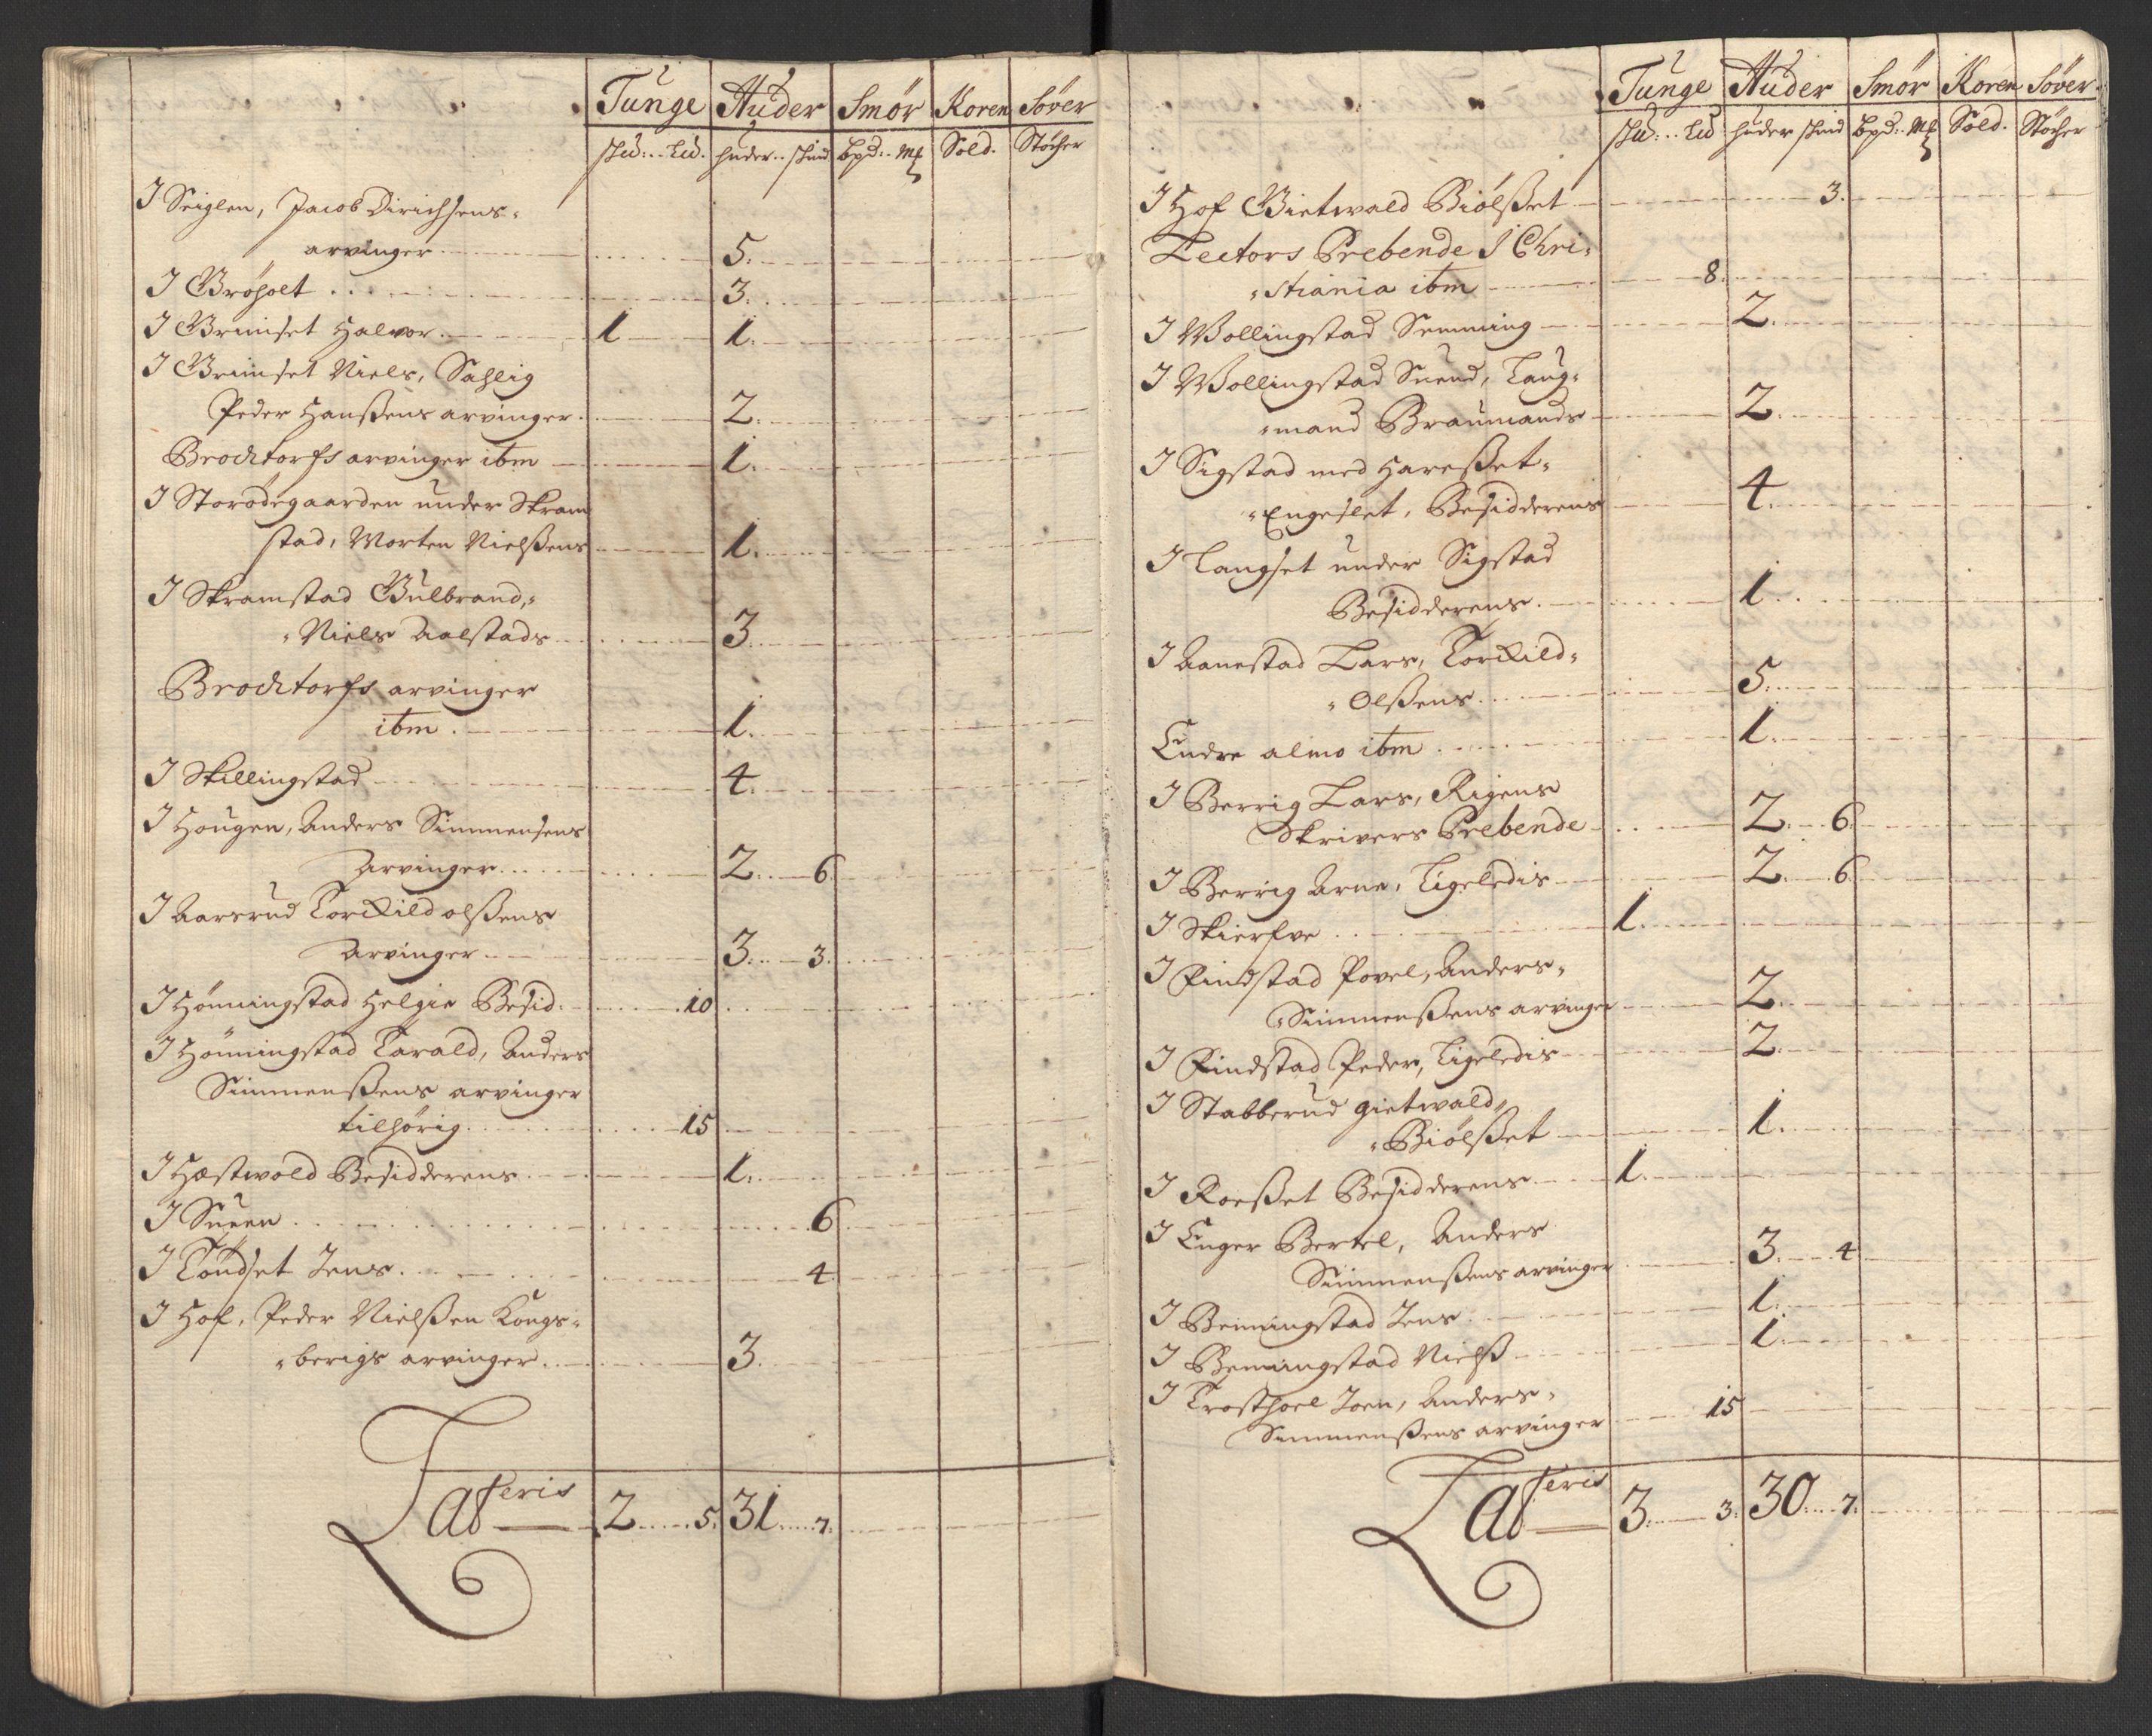 Tunge Huder Smør Koren Søver
skd: Lid. huder skind bpd: Mk Sold. Støcher
I Seiglen, Jacob Dirichsens
arvinger 5.
I Grøholt 3.
I Grimset Halvor 1 1.
I Grimset Niels, Sahlig
Peder Hanßens arvinger 2.
Brochtorfs arvinger ibm 1.
I Storødegaarden under Skram
stad, Morten Nielßens 1.
I Skramstad Gulbrand,
Niels Aalstads 3.
Brochtorfs arvinger
ibm 1.
I Skillingstad 4.
I Hougen, Anders Simmensens
Arvinger 2. 6
I Aarsrud Torkild olßens
Arvinger 3. 3.
I Hønningstad Helgie Besid: 10
I Hønningstad Tarald, Anders
Simmenßens arvinger
tilhørig 15
I Hæstwold Besidderens 1.
I Sueen 6
I Tøndset Jens 4.
I Hof, Peder Nielßen Kongs-
berigs arvinger 3.
Lateris 2 5. 31 7.
Tunge Huder Smør Koren Søver
skd: Lid huder skind bpd: Mk Sold. Støcher
I Hof Gietwald Biølßet 3.
Lectors Prebende I Chri-
stiania ibm 8.
I Wollingstad Semming 2.
I Wollingstad Suend, Laug-
mand Braumands 2.
I Sigstad med Hareßet-
Engeslet, Besidderens 4.
I Langset under Sigstad
Besidderens 1.
I Aanestad Lars, Torkild
Olßens 5.
Endre almo ibm 1.
I Berrig Lars, Rigens
Skrivers Prebende 2. 6.
I Berrig Arne, Ligeledis 2. 6.
I Skierfve 1.
I Findstad Povel, Anders
Simmenßens arvinger 2.
I Findstad Peder, Ligeledis 2.
I Stabberud gietwald
Biølßet 1.
I Roeßet Besidderens 1.
I Enger Bertel, Anders
Simmenßens arvinger 3. 4
I Benningstad Jens 1.
I Benningstad Nielß 1.
I Trosthoel Joen, Anders
Simmenßens arvinger 15
Lateris 3. 3. 30 7.